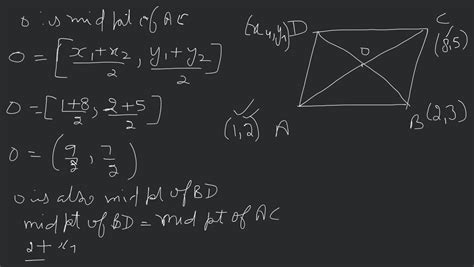 O is mid pt of AC
O = [x₁+x₂/2, y₁+y₂/2]
O = [1+8/2, 2+5/2]
O = (9/2, 7/2)
O is also mid pt of BD
mid pt of BD = mid pt of AC
2+x₁
(x₁,y₁) D
C
(8,5)
O
(1,2) A
B (2,3)